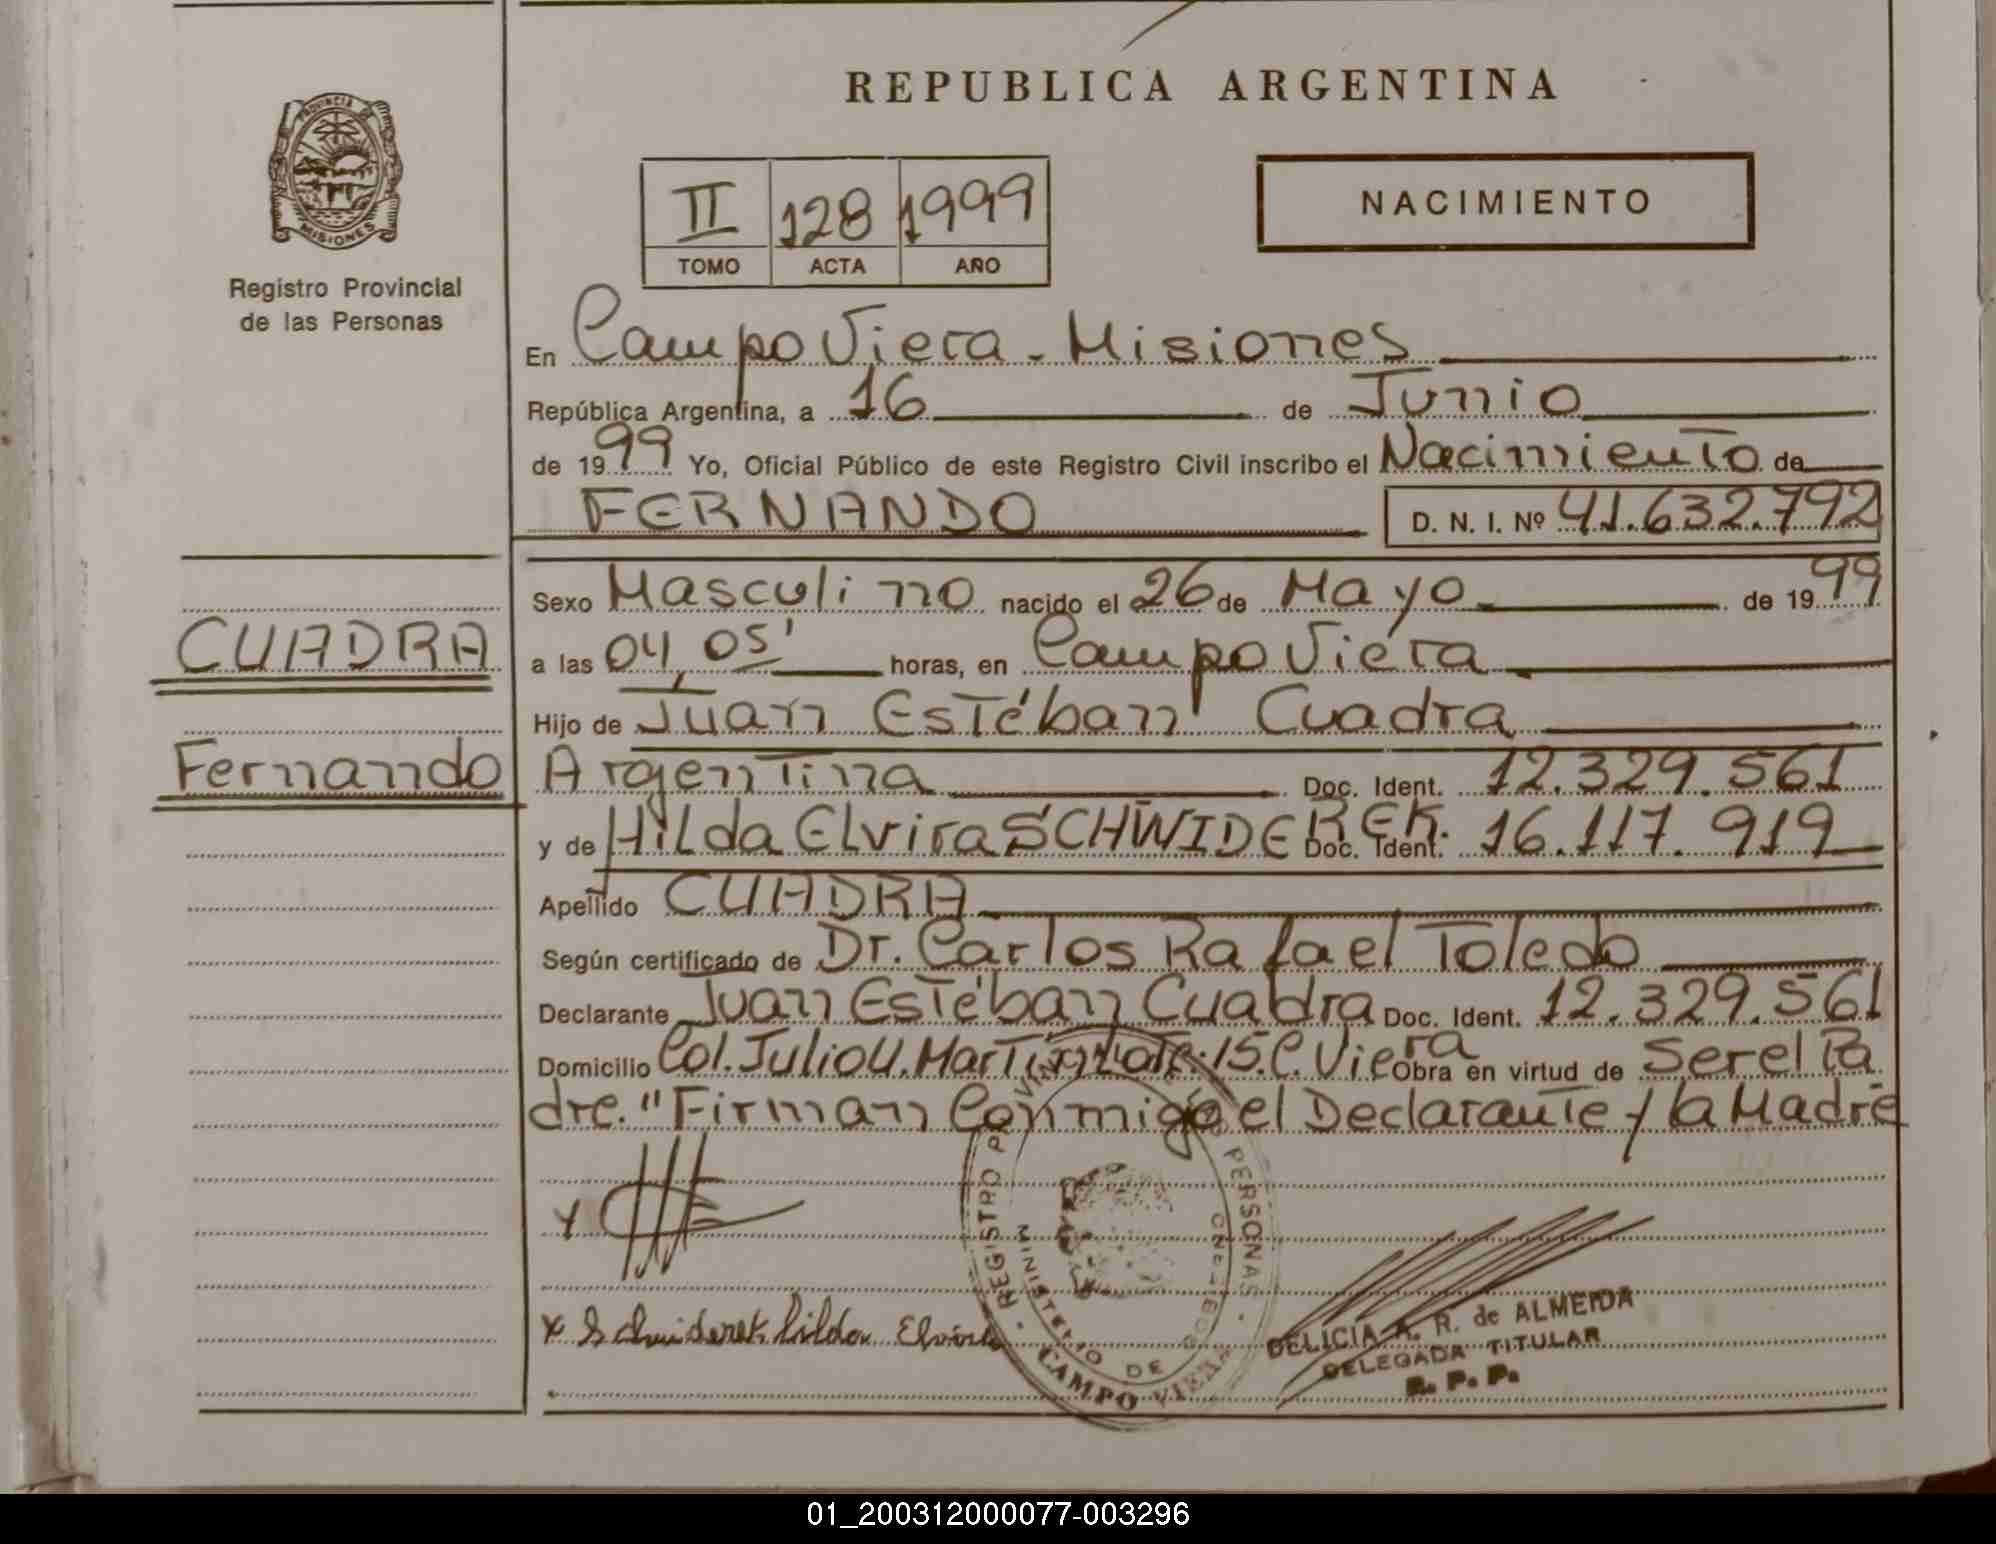 REPUBLICA ARGENTINA
PROVINCIA
MISIONES
Registro Provincial
de las Personas
II 128 1999
TOMO ACTA AÑO
NACIMIENTO
En Campo Viera - Misiones
República Argentina, a 16 de Junio
de 1999 Yo, Oficial Público de este Registro Civil inscribo el Nacimiento de
FERNANDO D. N. I. Nº 41.632.792
Sexo Masculino nacido el 26 de Mayo de 1999
CUADRA
a las 04,05' horas, en Campo Viera
Hijo de Juan Estéban Cuadra
Fernando
Argentina Doc. Ident. 12.329.561
y de Hilda Elvira SCHWIDEREK. Doc. Ident. 16.117.919
Apellido CUADRA
Según certificado de Dr. Carlos Rafael Toledo
Declarante Juan Estéban Cuadra Doc. Ident. 12.329.561
Domicilio Col. Julio U. Martin Lote: 15. C. Viera Obra en virtud de Ser el Pa
dre. "Firman Conmigo el Declarante y la Madre
REGISTRO PERSONAS
MINISTERIO DE
CAMPO VIERA
DELICIA A. R. de ALMEIDA
DELEGADA TITULAR
R. P. P.
01_200312000077-003296